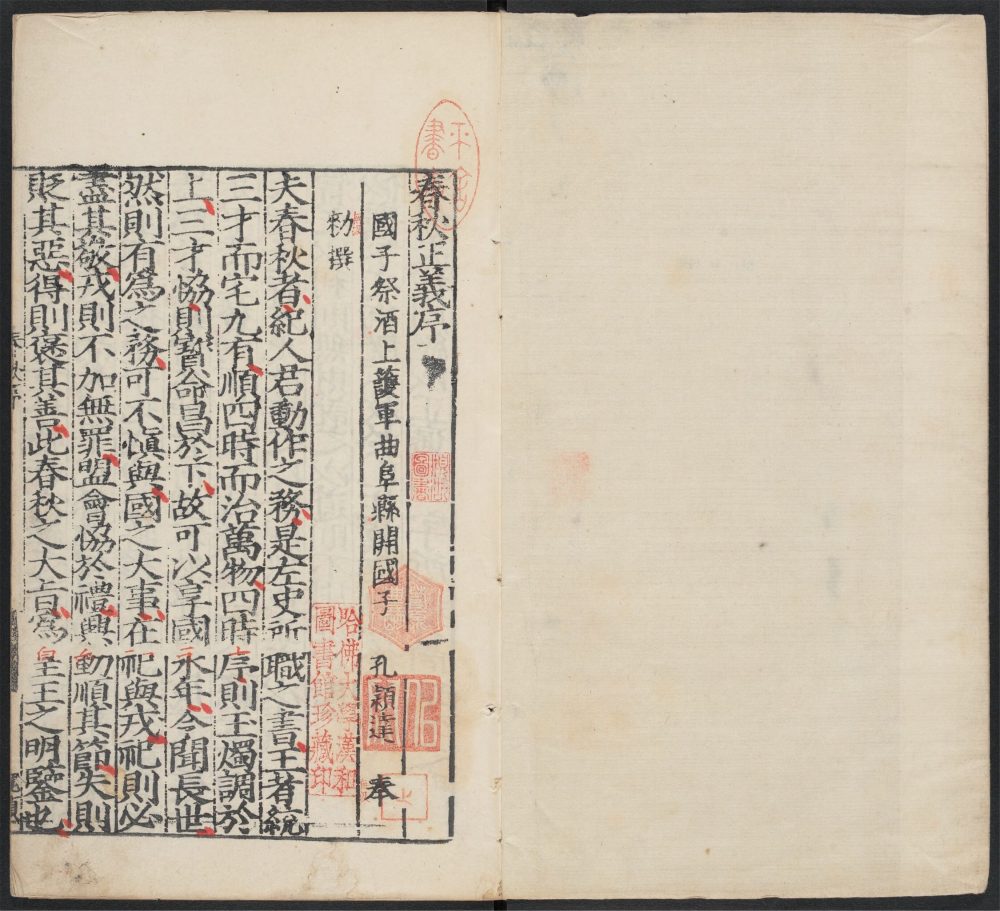 春秋正義序
國子祭酒上護軍曲阜縣開國子 孔穎達 奉
勑撰
夫春秋者紀人君動作之務是左史所職之書王者統
三才而宅九有順四時而治萬物四時序則玉燭調於
上三才恊則寳命昌於下故可以享國永年令聞長世
然則有爲之務可不慎與國之大事在祀與戎祀則必
盡其敬戎則不加無罪盟會恊於禮興動順其節失則
貶其惡得則褒其善此春秋之大旨爲皇王之明鑒也
哈佛大學漢和
圖書館珍藏印